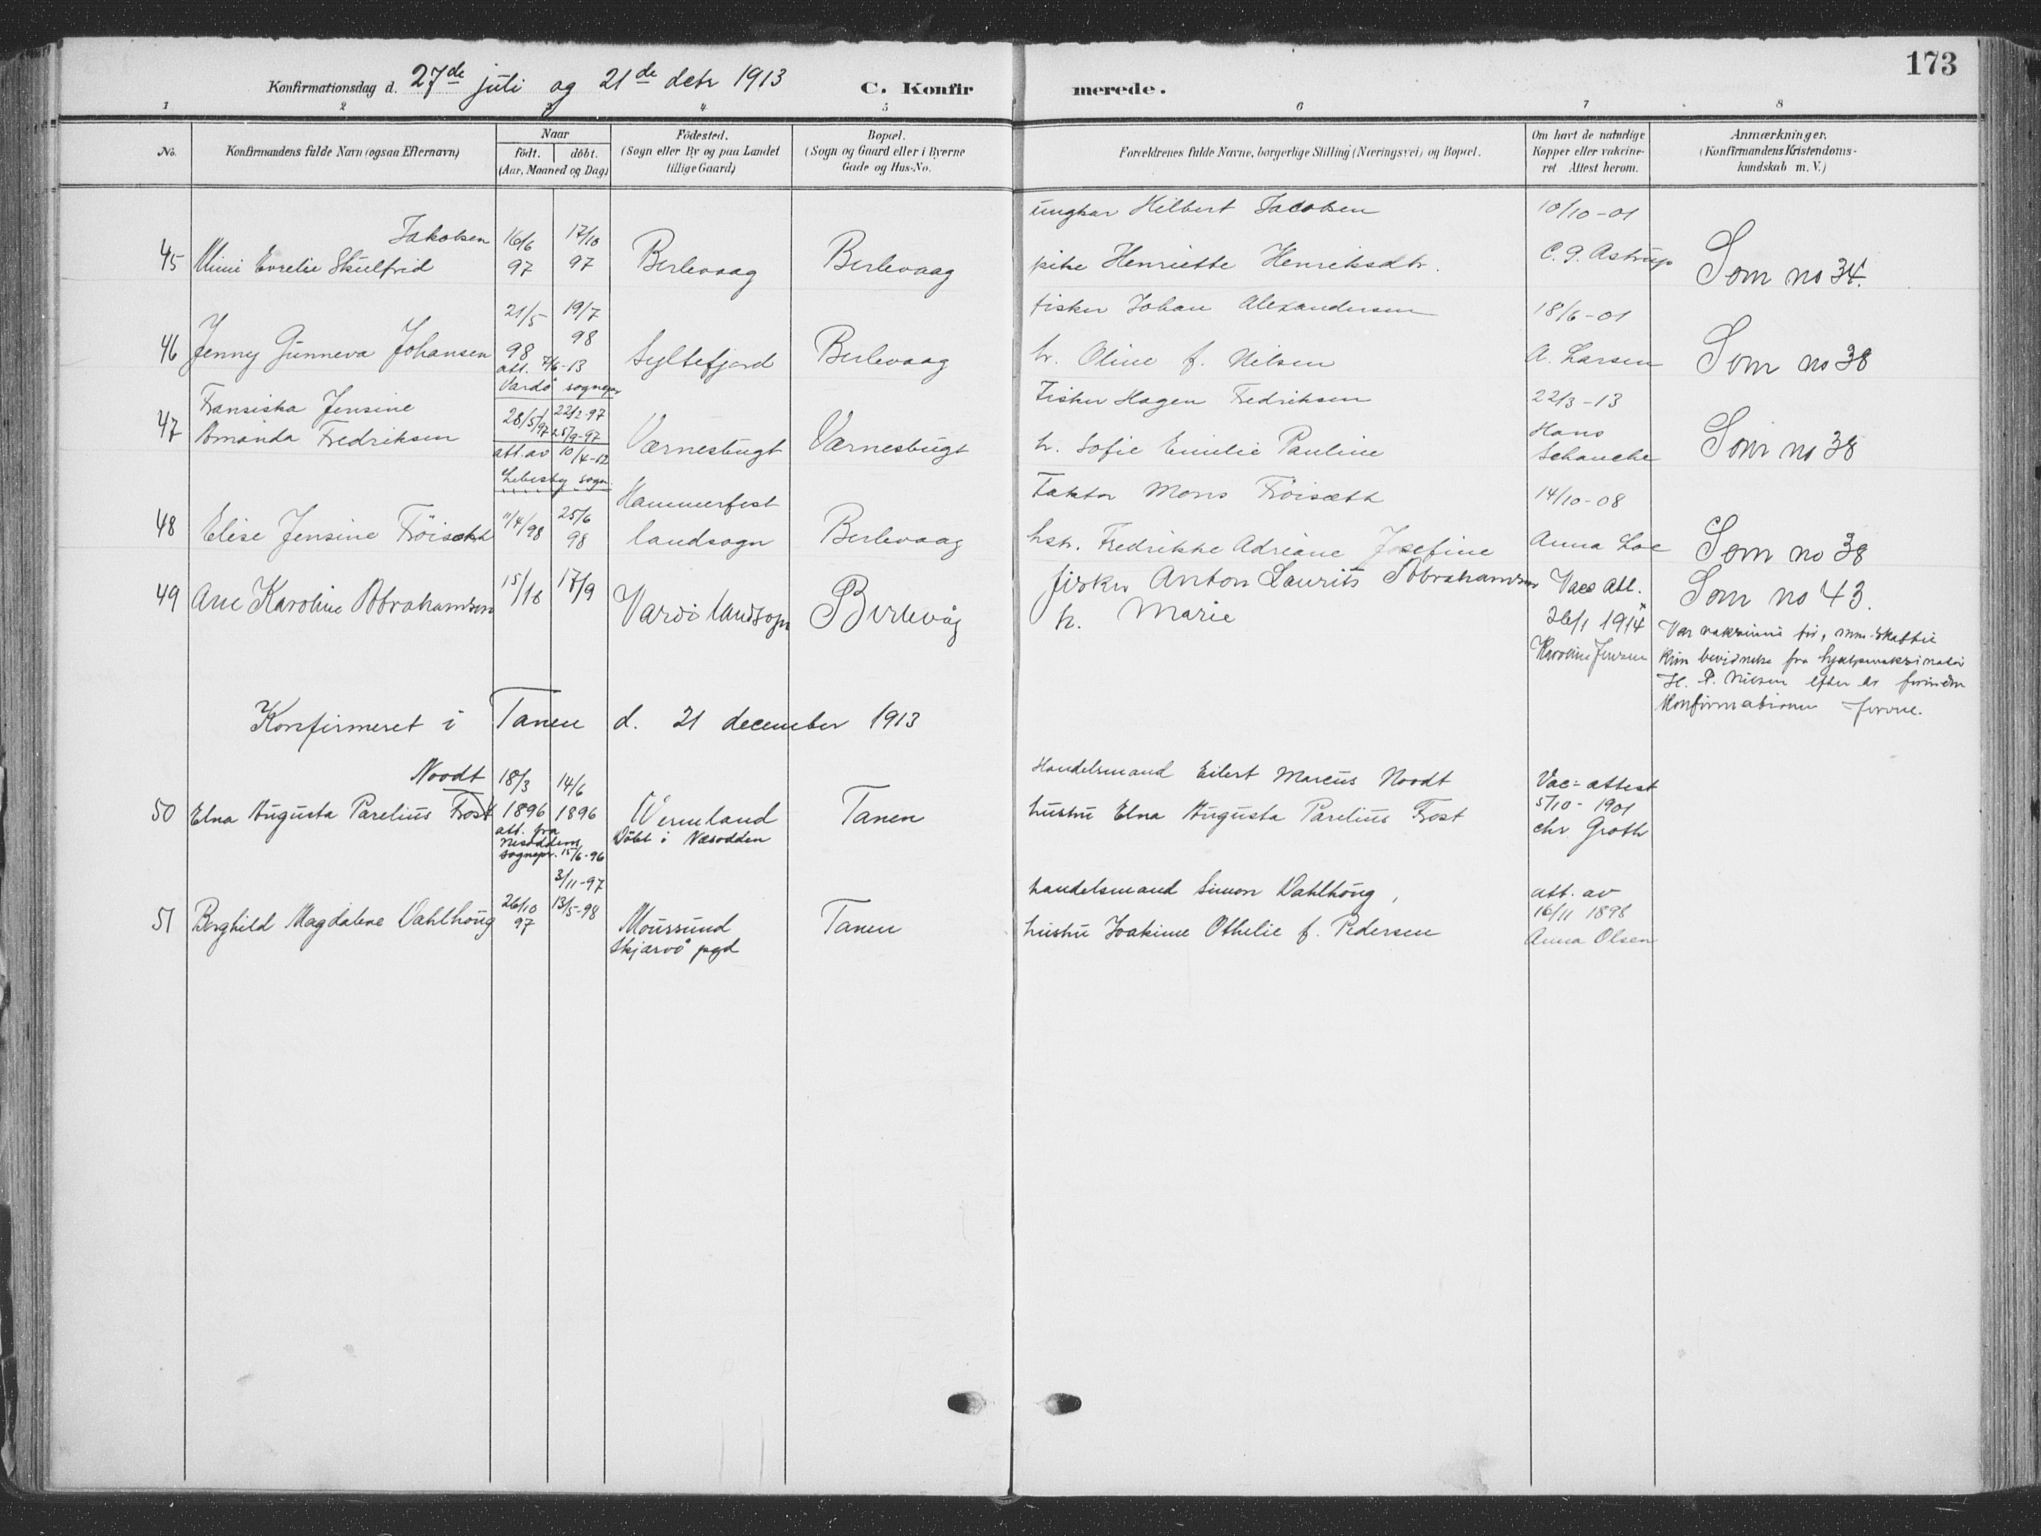 173
Konfirmationsdag d. 27de juli og 21de decbr 1913 C. Konfirmerede.
1 2 3 4 5 6 7 8
No.
Konfirmandens fulde Navn (ogsaa Efternavn)
Naar
födt. döbt.
(Aar, Maaned og Dag)
Födested.
(Sogn eller By og paa Landet
tillige Gaard)
Bopæl.
(Sogn og Gaard eller i Byerne
Gade og Hus-No.
Forældrenes fulde Navne, borgerlige Stilling (Næringsvei) og Bopæl.
Om havt de naturlige
Kopper eller vakcine-
ret Attest herom.
Anmærkninger.
(Konfirmandens Kristendoms-
kundskab m. V.)
Jakobsen 16/6 17/10 ungkar Hilbert Jacobsen 10/10-01
45 Skulfrid 97 97 Berlevaag Berlevaag pike Henriette Henriksdtr. C. J. Astrup Som no 34.
21/5 19/7 fisker Johan Alexandersen 18/6-01
46 Jenny Gunneva Johansen 98 98 Syltefjord Berlevaag h. Oline f. Nilsen A. Larsen Som no 38
att. 7/6-13
Vardö sognepr
Fransiska Jensine 28/5/97 22/2-97 Fisker Hagen Fredriksen 22/3-13
47 Amanda Fredriksen 25/9-97 Værnesbugt Værnesbugt h. Sofie Emilie Pauline Hans Schanche Som no 38
att. av 10/4-12
Lebesby sogn.
Hammerfest Faktor Mons Fröisæth 14/10-08
48 Elise Jensine Fröisæth 11/4/98 25/6 98 landsogn Berlevaag hstr. Fredrikke Adriane Josefine Anna Loe Som no 38
49 Ane Karoline Abrahamsen 15/16 17/9 Vardö landsogn Berlevåg fisker Anton Laurits Abrahamsen Vacc att. Som no 43.
h. Marie 26/1 1914
Karoline Jensen
Var för,
fra
H. P. Nilsen efter
Konfirmationen
Konfirmeret i Tanen d. 21 december 1913
Noodt 18/3 14/6 Handelsmand Eilert Marcus Noodt Vac=attest
50 Elna Augusta Parelius Frost 1896 1896 Vermland Tanen hustru Elna Augusta Parelius Frost 5/10-1901
att. fra Nesoddem Döbt i Næsodden chr Groth
sognepr. 15/6-96
3/11-97 handelsmand Simon Dahlhöug, att. av
51 Borghild Magdalene Dahlhöug 26/10 97 13/5-98 Moursund Tanen hustru Joakime Othelie f. Pedersen 16/11 1898
Skjærvö pgd Anna Olsen